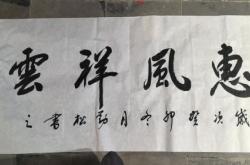 惠風祥雲
歲次癸卯冬月松書之